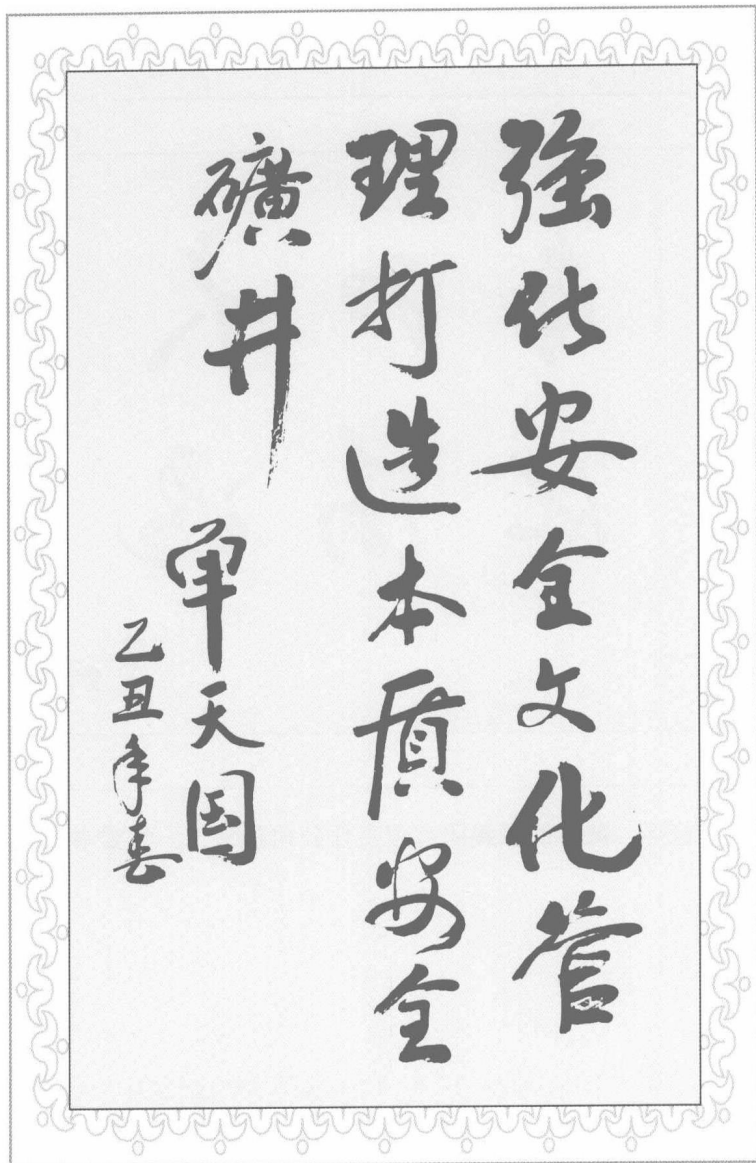 強化安全文化管
理打造本质安全
礦井
单天国
乙丑年春